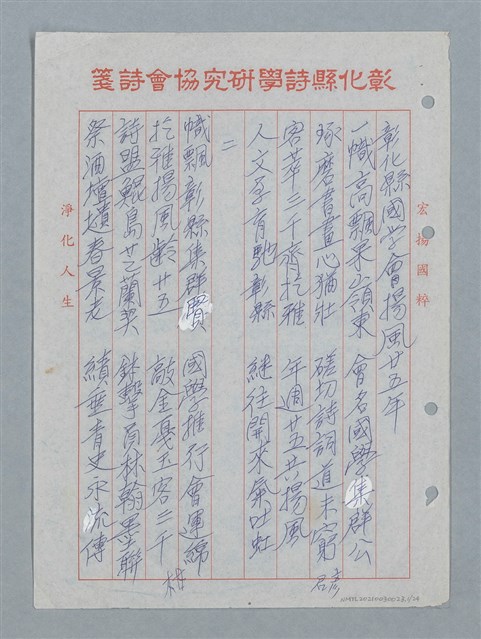 彰化縣詩學研究協會詩箋
宏揚國粹
彰化縣國学會揚風廿五年
一幟高飄果山嶺東 會名國學集群公
琢磨書畫心猶壯 磋切詩詞道未窮
客萃三千齊扢雅 年週廿五共揚風
人文孕育馳彰縣 継往開來氣吐虹
二
幟飄彰縣集群賢 國學推行會運綿
扢雅揚風齡廿五 敲金戛玉客三千
詩盟鯤島芝蘭契 鉢擊員林翰墨聯
祭酒壇 春景老 績垂青史永流傳
淨化人生